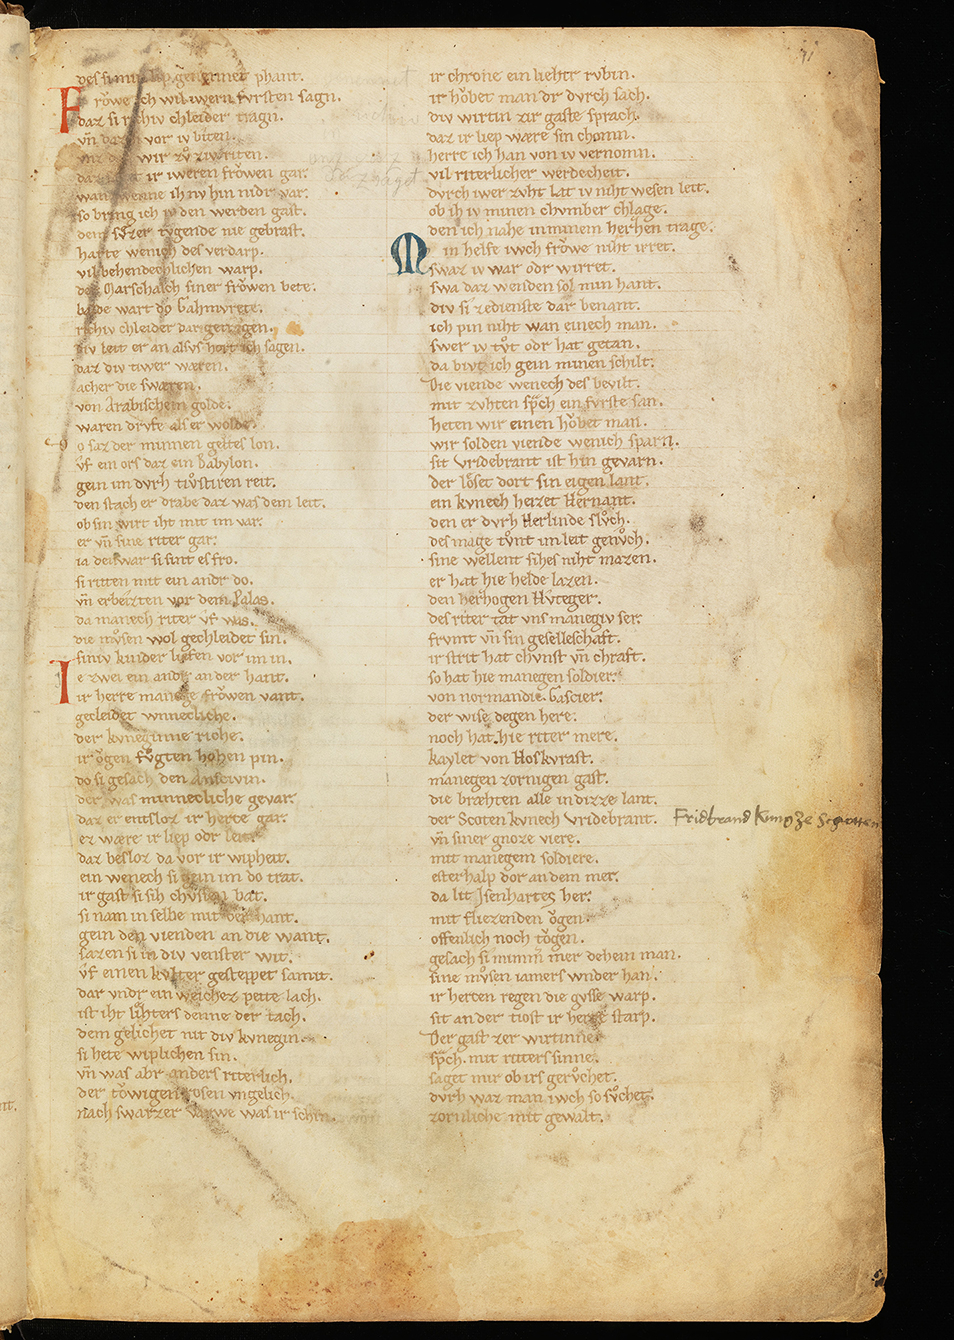 des si im lip gein ermet phant.
Frowe ich wil iwern fvrsten sagn.
daz si richiv chleider tragn.
vn̄ daz vor iv biten.
vnz daz wir zv̊ ziv riten.
ir iweren frŏwen gar.
wan wenne ih nv hin nidr var.
so bring ich iv den werden gast.
dem sv̊zer tvgende nie gebrast.
harte wenich des verdarp.
vil behendechlichen warp.
der Marschalch siner frŏwen bete.
balde wart do Gahmvrete.
richiv chleider dar getragen.
div leit er an alsvs hort ich sagen.
daz div tiwer wæren.
acher die swæren.
von Arabischem golde.
waren drvfe als er wolde.
Do saz der minnen geltes lon.
v̊f ein ors daz ein babylon.
gein im dvrh tiv̊stiren reit.
den stach er drabe daz was dem leit.
ob sin wirt iht mit im var.
er vn̄ sine riter gar.
ia deiswar si sint es fro.
si riten mit ein andr do.
vn̄ erbeizten vor dem Palas.
da manech riter v̊f was.
die mv̊sen wol gechleidet sin.
siniv kinder liefen vor im in.
Ie zwei ein andr an der hant.
ir herre manege frŏwen vant.
gecleidet wnnecliche.
der kvneginne riche.
ir ŏgen fv̊gten hohen pin.
do si gesach den Anscivin.
der was minnecliche gevar.
daz er entsloz ir herce gar.
ez wære ir liep odr leit.
daz besloz da vor ir wipheit.
ein wenech si gein im do trat.
ir gast si sih chvssen bat.
si nam in selbe mit der hant.
gein den vienden an die want.
sazen si in div venster wit.
v̊f einen kvlter gesteppet samit.
dar vndr ein weichez pette lach.
ist iht liehters denne der tach.
dem gelichet nit div kvnegin.
si hete wiplichen sin.
vn̄ was abr anders riterlich.
der tŏwigen rosen vngelich.
nach swarzer varwe was ir schin.
ir chrone ein liehtr rvbin.
ir hŏbet man dr dvrch sach.
div wirtin zir gaste sprach.
daz ir liep wære sin chomn.
herre ich han von iv vernomn.
vil riterlicher werdecheit.
dvrch iwer zvht lat iv niht wesen leit.
ob ih iv minen chvmber chlage.
den ich nahe in minem herhen trage.
Min helfe iwch frŏwe niht irret.
swaz iv war odr wirret.
swa daz wenden sol min hant.
div si zedienste dar benant.
ich pin niht wan einech man.
swer iv tv̊t odr hat getan.
da bivt ich gein minen schilt.
Die viende wenech des bevilt.
mit zvhten sp̄ch ein fvrste san.
heten wir einen hŏbet man.
wir solden viende wenich sparn.
sit vridebrant ist hin gevarn.
der lŏset dort sin eigen lant.
ein kvnech heizet Hernant.
den er dvrh Herlinde slv̊ch.
des mage tv̊nt im leit genv̊ch.
sine wellent sihes niht mazen.
er hat hie helde lazen.
den herhogen Hvteger.
des riter tat vns manegiv ser.
frvmt vn̄ sin geselleschaft.
ir strit hat chvnst vn̄ chraft.
so hat hie manegen soldier.
von normandie Gascier.
der wise degen here.
noch hat hie riter mere.
kaylet von Hoskvrast.
manegen zornigen gast.
die bræhten alle in dizze lant.
der Scoten kvnech vridebrant.
Fridbrand Kunig ze Schotten
vn̄ siner gnoze viere.
mit manegem soldiere.
esterhalp dor an dem mer.
da lit Isenhartes her.
mit fliezenden ŏgen.
offenlich noch tŏgen.
gesach si nimm̄ mer dehein man.
sine mv̊sen iamers wnder han.
ir herten regen die gvsse warp.
sit an der tiost ir herre starp.
Der gast zer wirtinne.
sp̄ch. mit riters sinne.
saget mir ob irs gerv̊chet.
dvrh waz man iwch so sv̊chet.
zornliche mit gewalt.